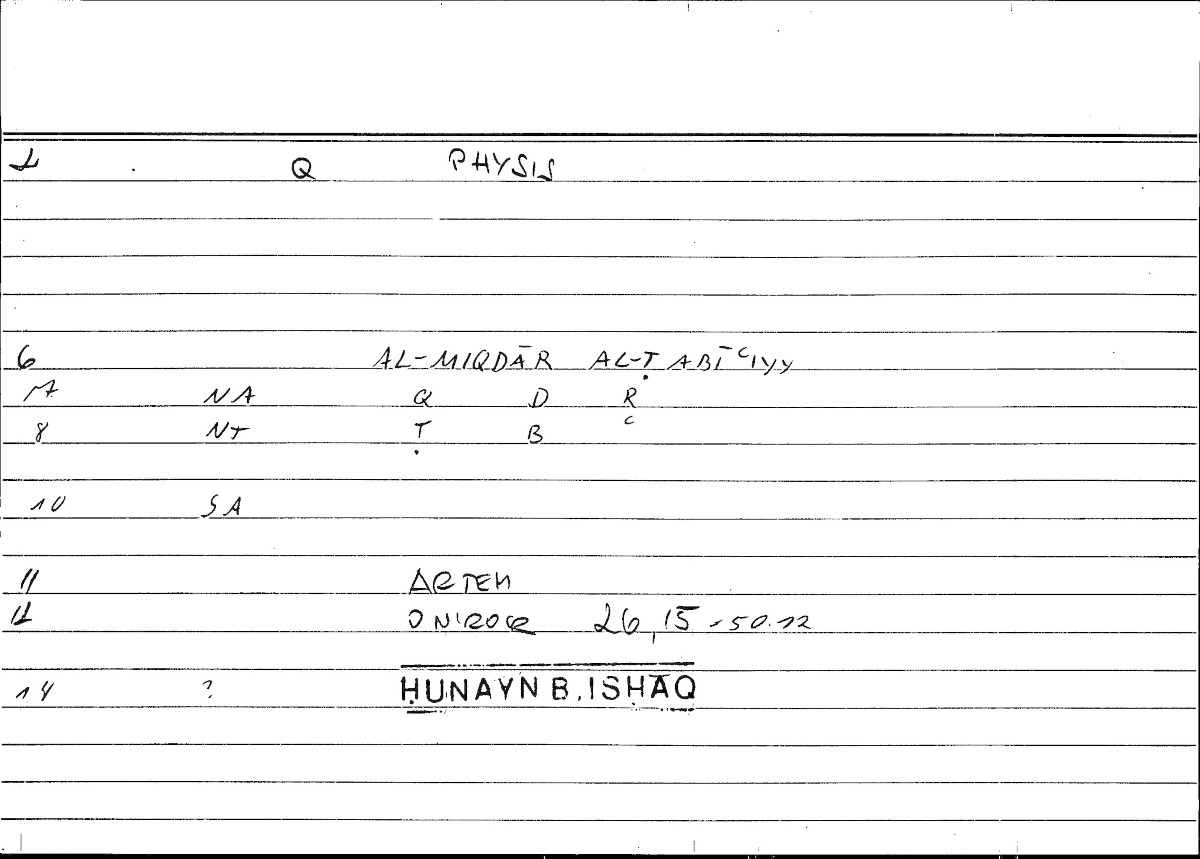 1 Q PHYSIS
6 AL-MIQDĀR AL-ṬABĪʿIYY
7 NA Q D R
8 NT Ṭ B ʿ
10 SA
11 ARTEM
12 ONIROCR 26,15 - 50.12
14 ? ḤUNAYN B. ISḤĀQ